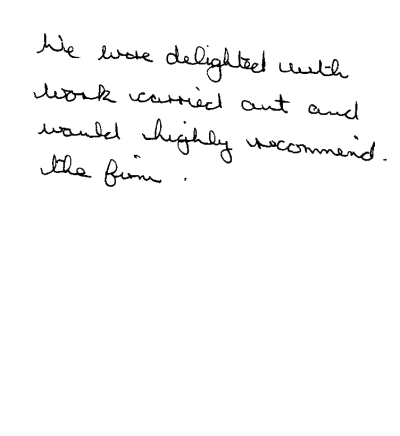 We were delighted with
work carried out and
would highly recommend.
the firm.